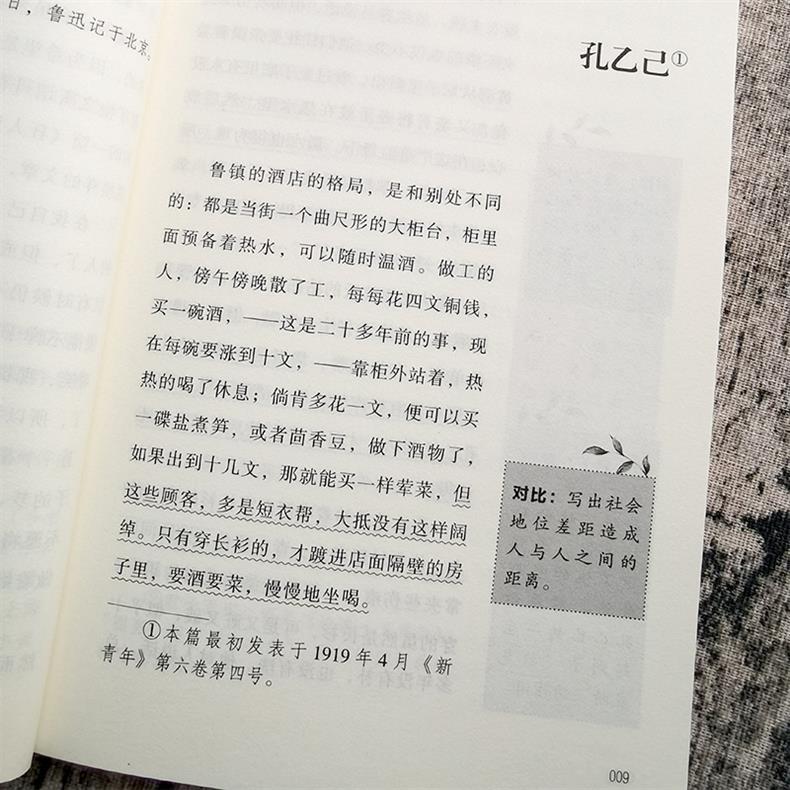 日，鲁迅记于北京。
孔乙己①
鲁镇的酒店的格局，是和别处不同
的：都是当街一个曲尺形的大柜台，柜里
面预备着热水，可以随时温酒。做工的
人，傍午傍晚散了工，每每花四文铜钱，
买一碗酒，——这是二十多年前的事，现
在每碗要涨到十文，——靠柜外站着，热
热的喝了休息；倘肯多花一文，便可以买
一碟盐煮笋，或者茴香豆，做下酒物了，
如果出到十几文，那就能买一样荤菜，但
这些顾客，多是短衣帮，大抵没有这样阔
绰。只有穿长衫的，才踱进店面隔壁的房
子里，要酒要菜，慢慢地坐喝。
对比：写出社会
地位差距造成
人与人之间的
距离。
①本篇最初发表于1919年4月《新
青年》第六卷第四号。
009